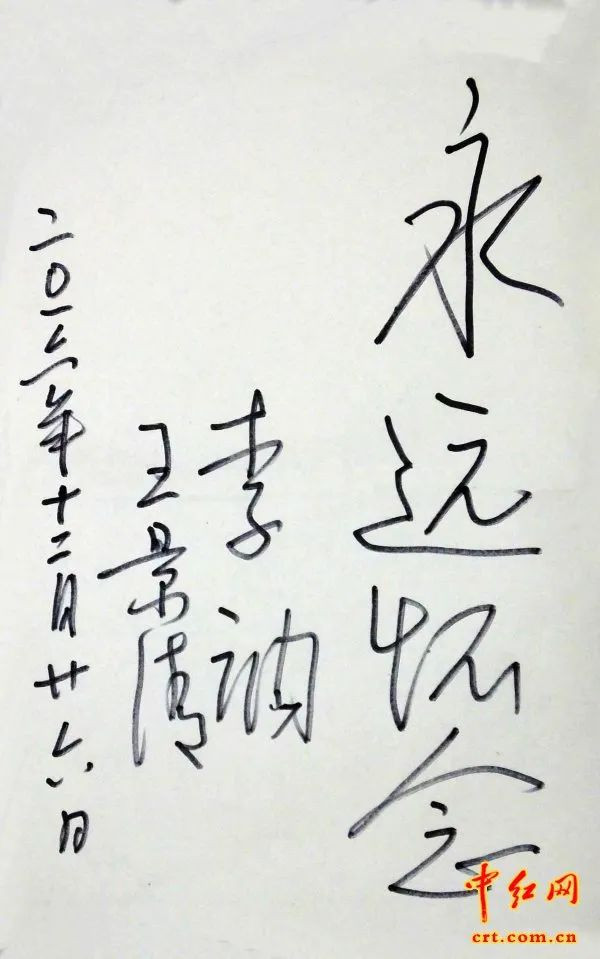 永远怀念
李讷
王景清
二〇一六年十二月廿六日
中红网
crt.com.cn